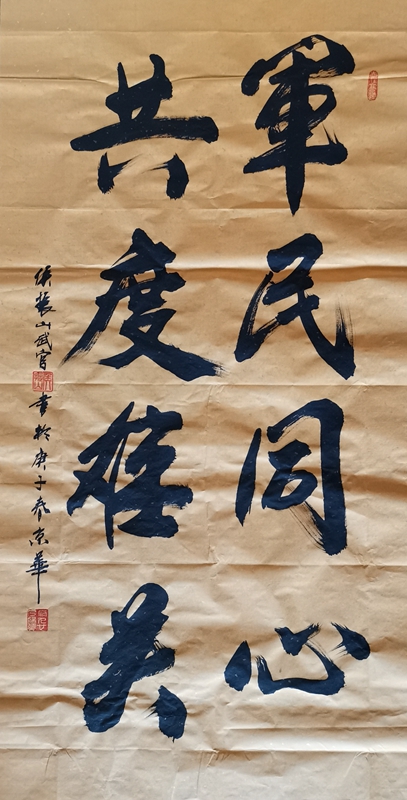 軍民同心
共度难关
山武官書於庚子春京華